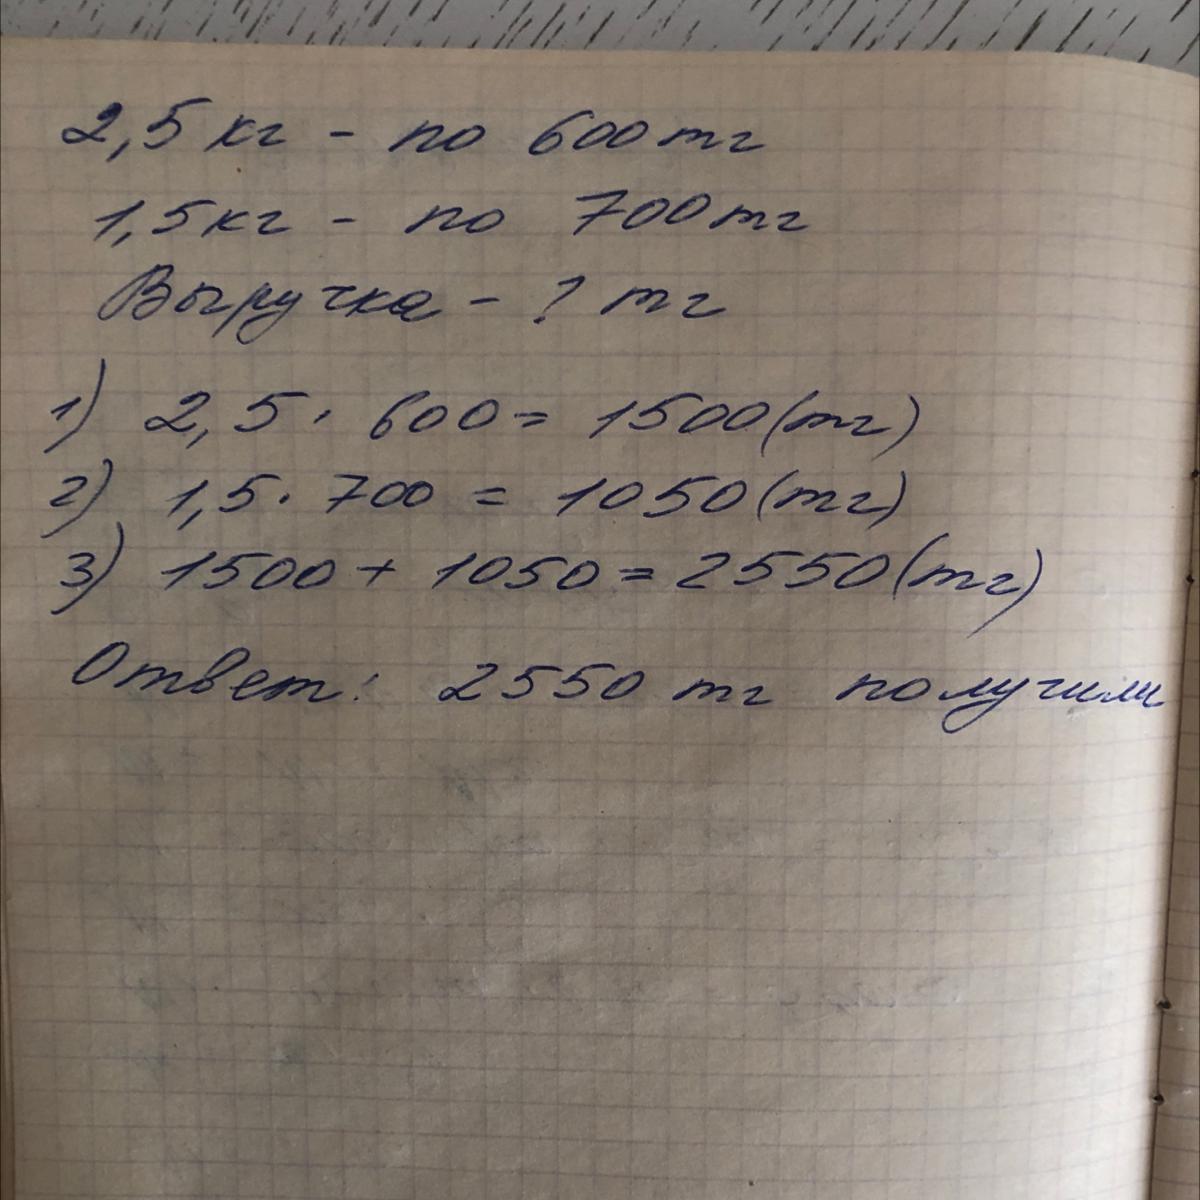 2,5 кг - по 600 тг
1,5 кг - по 700 тг
Выручка - ? тг
1) 2,5 · 600 = 1500 (тг)
2) 1,5 · 700 = 1050 (тг)
3) 1500 + 1050 = 2550 (тг)
Ответ: 2550 тг получили